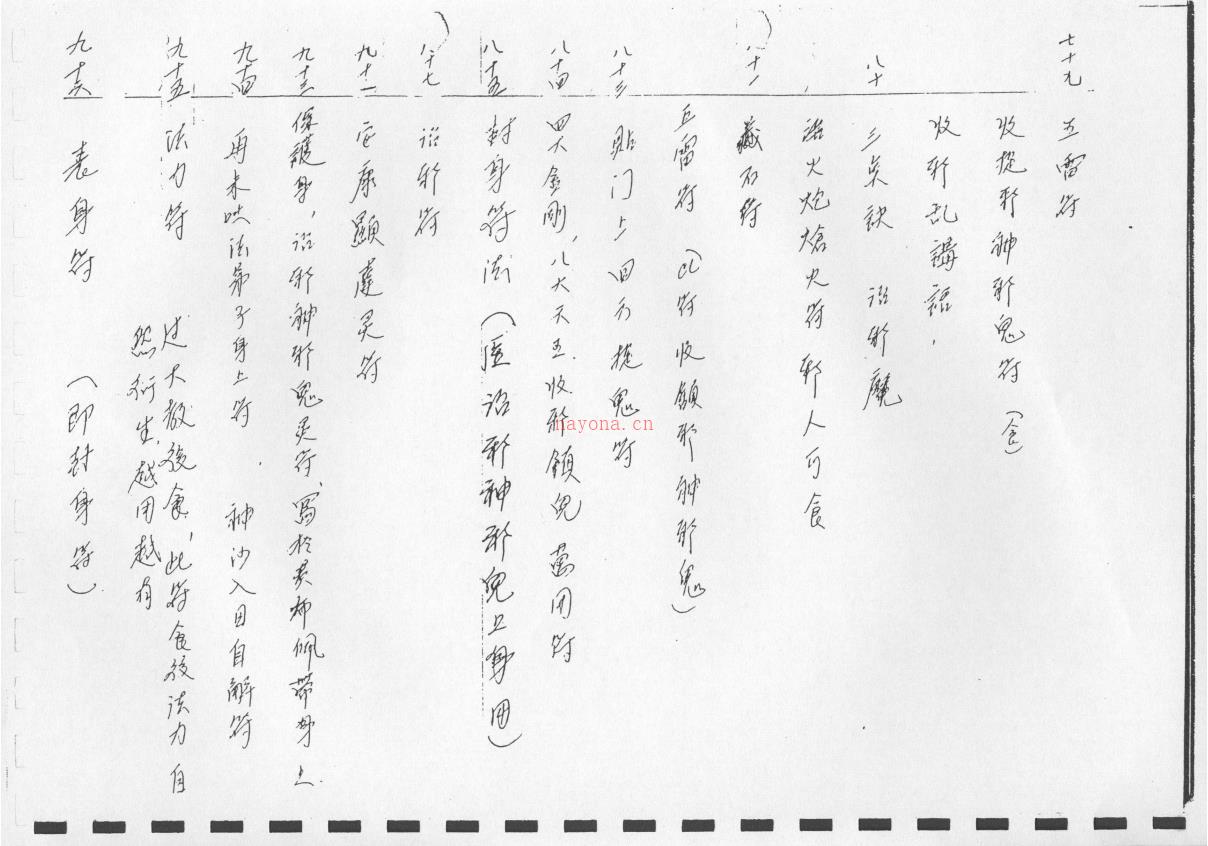 七十九 五雷符
收捉邪神邪鬼符(食)
收邪乱講話,
八十 三炁訣 治邪魔
治火炮熗火符 邪人可食
八十一 藏石符
五雷符 (此符收鎖邪神邪鬼)
八十三 貼门上四方捉鬼符
八十四 四大金剛,八大天王收邪鎖鬼萬用符
八十五 封身符法(医治邪神邪鬼上身用)
八十七 治邪符
九十一 安康顯達灵符
九十三 保護身,治邪神邪鬼灵符,寫於黃布佩帶身上.
九十四 再未吠法弟子身上符 神沙入目自解符
九十五 法力符 过大教後食,此符食後法力自
然衍生,越用越有
九十六 表身符 (即封身符)
nayona.cn